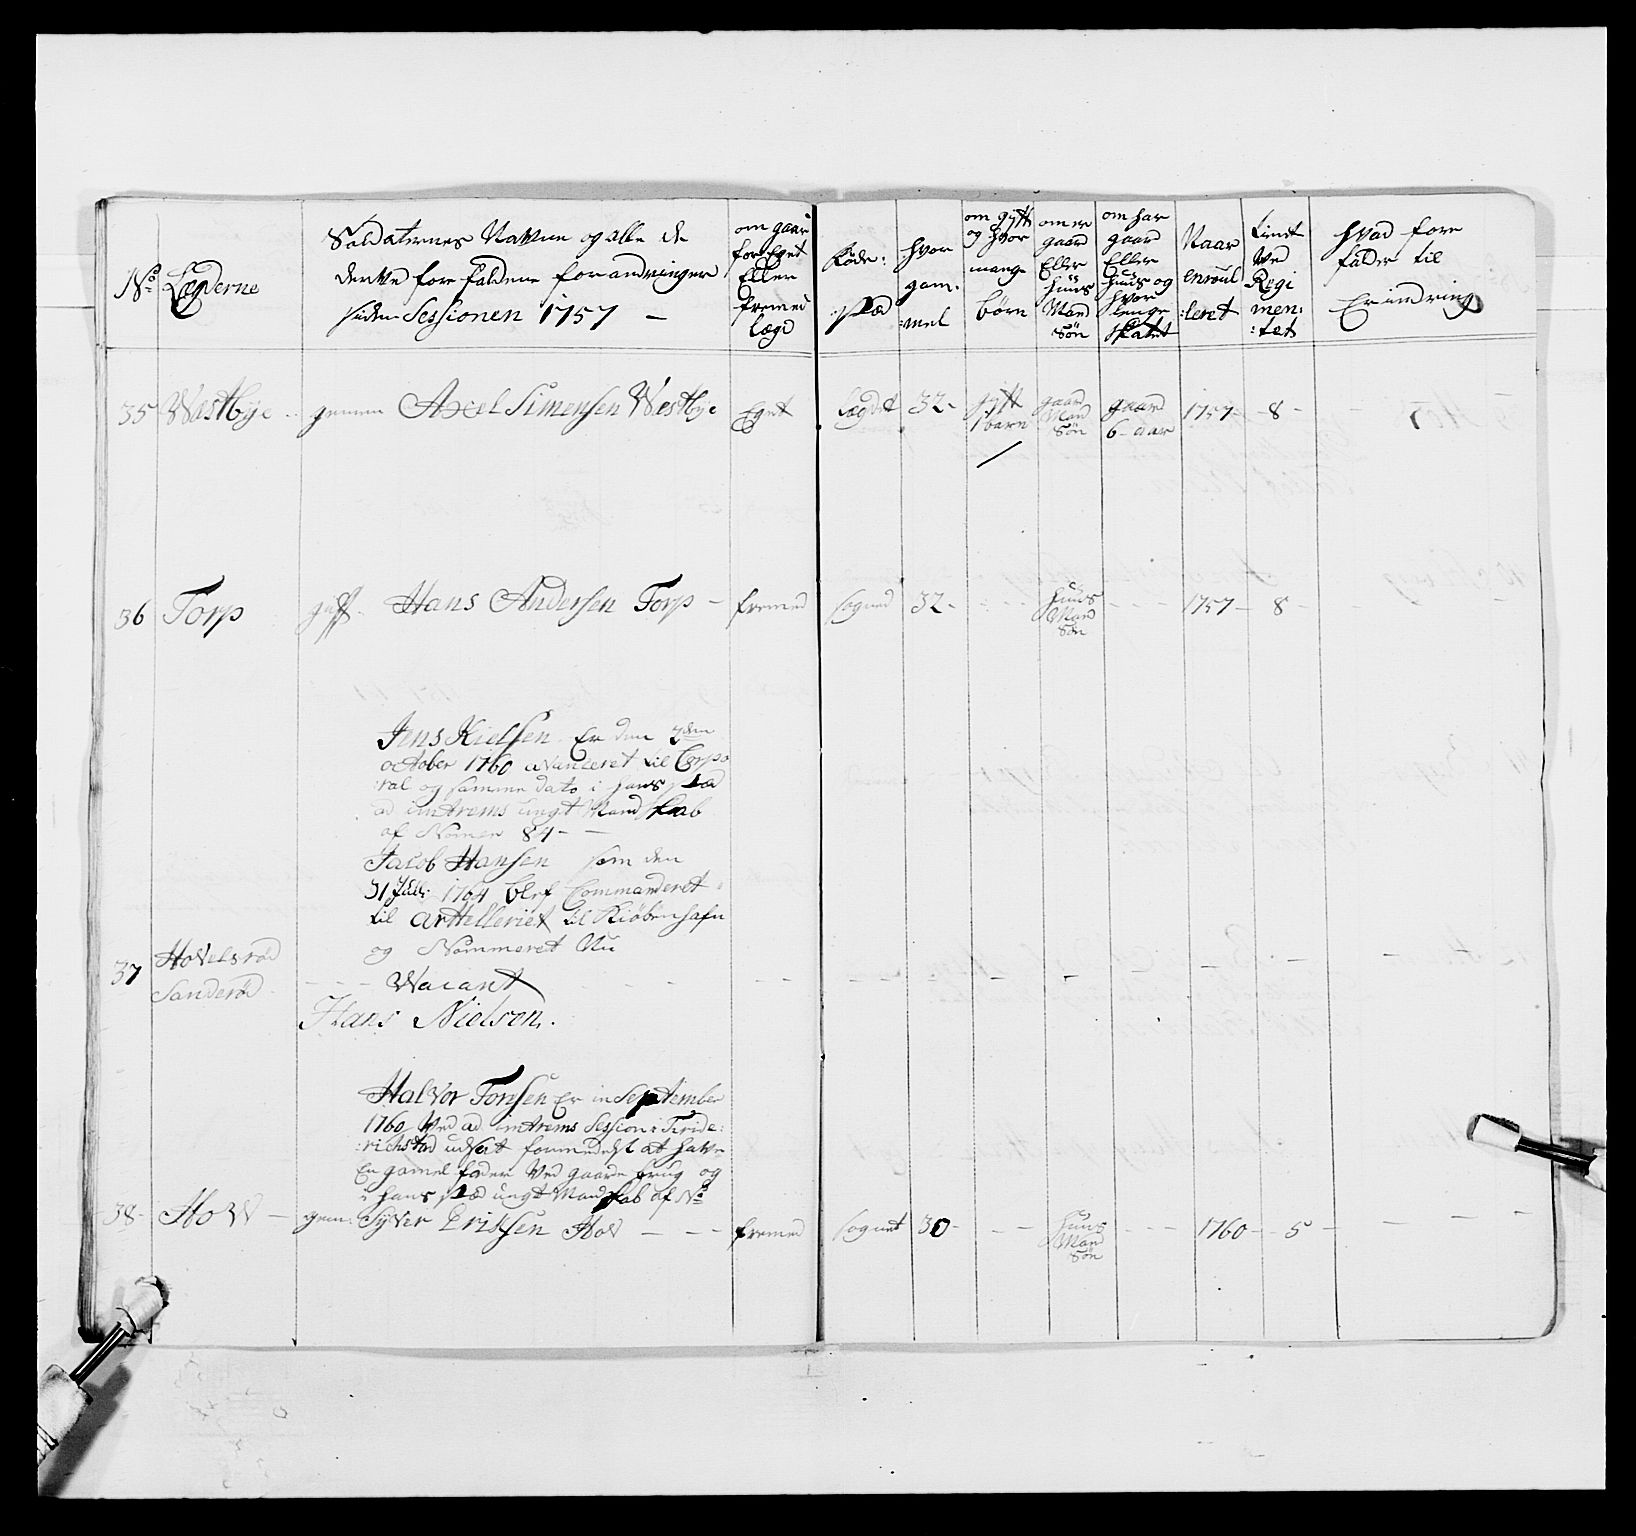 No
Lægderne
Soldaternes Navne og alle de
derVe fore faldene forandringer
siden Sessionen 1757 —
om gaar
for Eget
Eller
fremed
lægd
føde:
:stæd
hvor
gam:
:mel
om gift
og hvor
mange
børn
om er
gaard
Eller
huus
Mand
Søn
om har
gaard
Eller
huus og
hvor
lenge
skatet
Naar
enroul
:leret
tient
Ved
Regi
men:
:tet
hvad fore
falder til
Erindring
35 Westbye gemen Axel Simensen Westbye Eget
Lægdet 32 - gift
1 barn
gaard
Mand
Søn
gaard
6 - aar
1757 - 8 -
36 Torp Hans Andersen Torp - fremed
sogned 32 -
huus
Mand
Søn
1757 - 8 -
Jens Kielsen Er den 2den
october 1760 aVanceret til Corpo
:ral og samme dato i hans stæd
ad intrems ungt Mandskab
af Nomer 84 - -
Jacob Hansen som den
31 Julii 1764 blef Commanderet
til Artelleriet til Kiöbenhafn
og Nommeret Nu
37 Hovelsrød
Sanderød
- - - Wacant - - -
Hans Nielson.
Halvor Torsen Er in September
1760 Ved ad intrems Session i Fride:
:richstad udsat formedelst at have
En gamel fader Ved gaards brug og
i hans stæd ungt Mandskab af No
38 - HoW - gem: Syver Erichsen Hov - - - fremed
sognet 30 - - -
huus
Mand
Søn
- - - 1760 - 5 - - - -